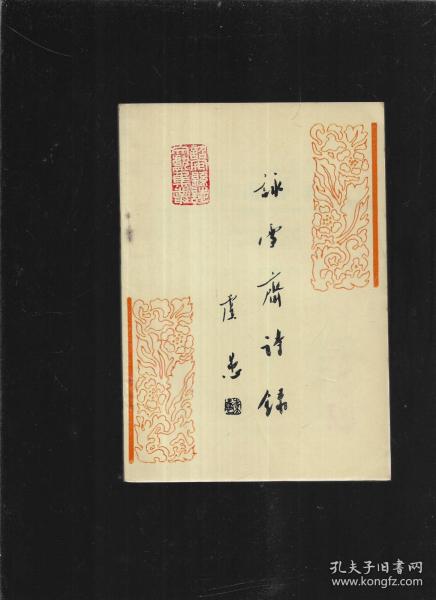 詠雪齋詩録
虞愚
孔夫子旧书网
www.kongfz.com